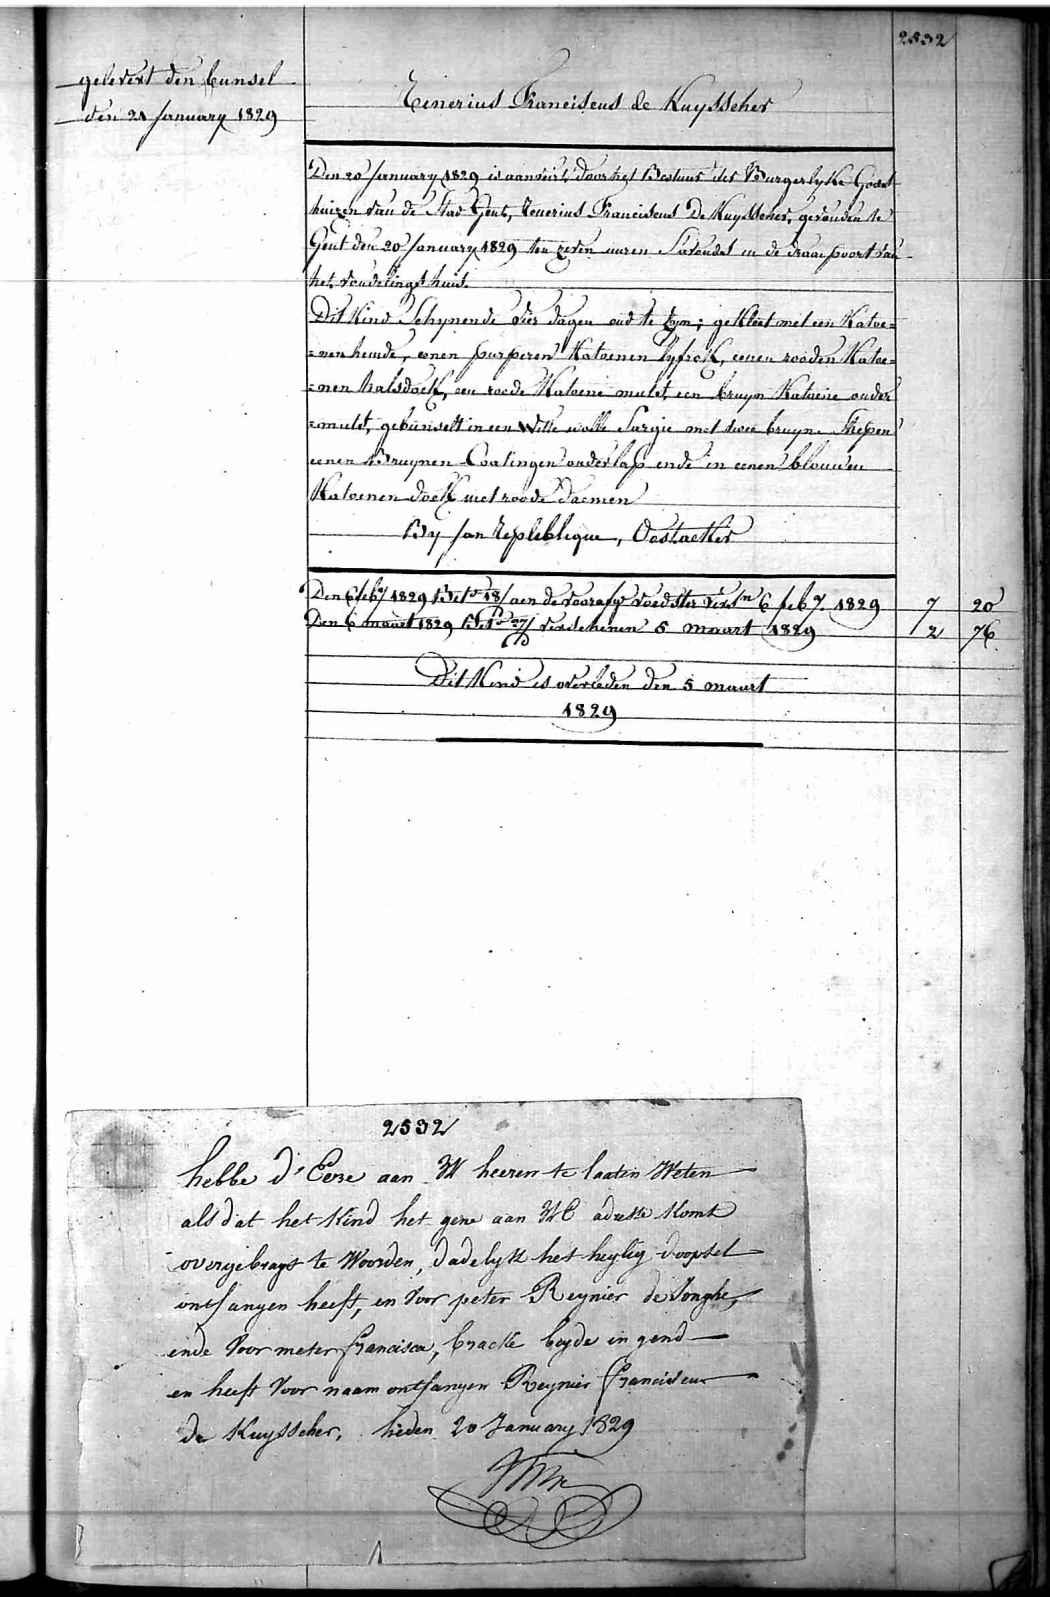 2532
gelevert den bunsel
den 21 January 1829
Renerius Franciscus de Kuysscher
Den 20 January 1829 is aanveirt door het Bestuur der Burgerlyke Godst
huizen van de Stad Gent, Renerius Franciscus De Kuysscher, gevonden te
Gent den 20 January 1829 ten zeven uuren S'avondst in de draaepoort van
het vondelings huis.
Dit Kind Schynende vier dagen oud te zyn; gekleet met een Katoe=
=nen hemde, eenen purperen Katoenen lyfrok, eenen rooden Katoe=
=nen halsdoek, een roode Katoene mutst, een bruyn Katoene onder
=mutst, gebunselt in een Witte wolle Sargie met twee bruyne Strepen
eenen Bruynen Coatingen onderlap ende in eenen blouwen
Katoenen doek met roode daemen
By Jan Replebleque, Oostacker
Den 6 feb.y 1829 Bet.o 18/ aen de voorafg.e voedster vers.n 6 feb.y 1829 7 20
Den 6 maart 1829 Bet.o 27/ verschenen 5 maart 1829 2 76
Dit Kind is overleden den 5 maart
1829
2532
hebbe d'Eere aan W heeren te laaten Weten
als dat het Kind het gene aan WE adresse Komt
overgebragt te Woorden, dadelyk het heylig doopsel
ontfangen heeft, en Voor peter Reynier de Jonghe,
ende Voor meter francisca, bracke beyde in gend
en heeft Voor naam ontfangen Reynier Franciscus
de Kuysscher, heden 20 January 1829